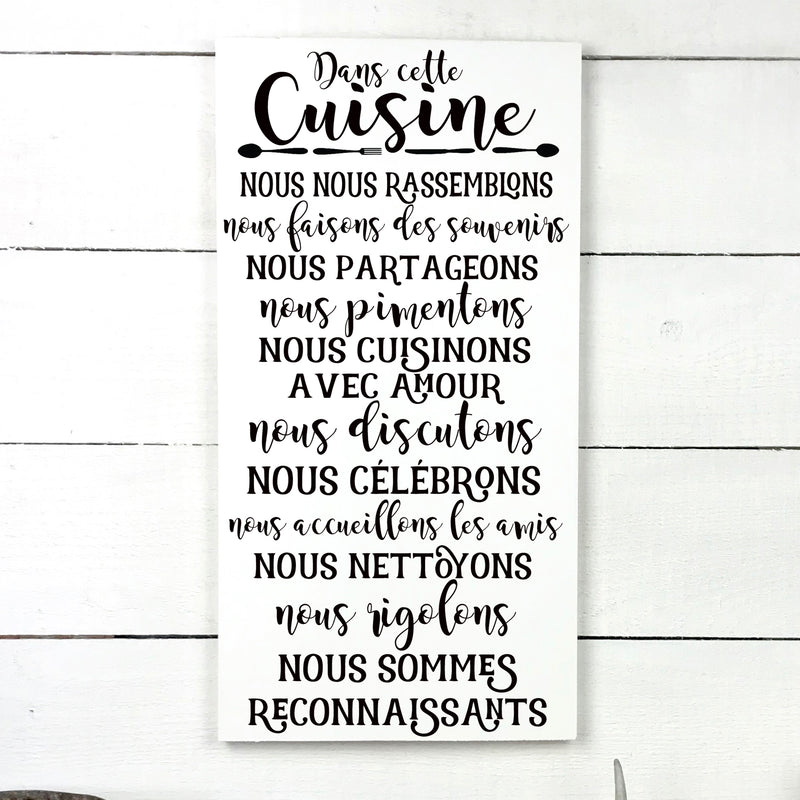 Dans cette
Cuisine
NOUS NOUS RASSEMBLONS
nous faisons des souvenirs
NOUS PARTAGEONS
nous pimentons
NOUS CUISINONS
AVEC AMOUR
nous discutons
NOUS CÉLÉBRONS
nous accueillons les amis
NOUS NETTOYONS
nous rigolons
NOUS SOMMES
RECONNAISSANTS